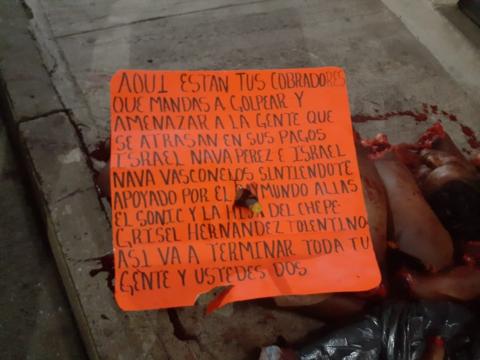 AQUI ESTAN TUS COBRADORES
QUE MANDAS A GOLPEAR Y
AMENAZAR A LA GENTE QUE
SE ATRASAN EN SUS PAGOS
ISRAEL NAVA PEREZ E ISRAEL
NAVA VASCONCLOS SINTIENDOTE
APOYADO POR EL MUNDO ALIAS
EL SONIC Y LA DEL CHEPE-
GRISEL HERNANDEZ TOLENTINO
ASI VA A TERMINAR TODA TU
GENTE Y USTEDES DOS